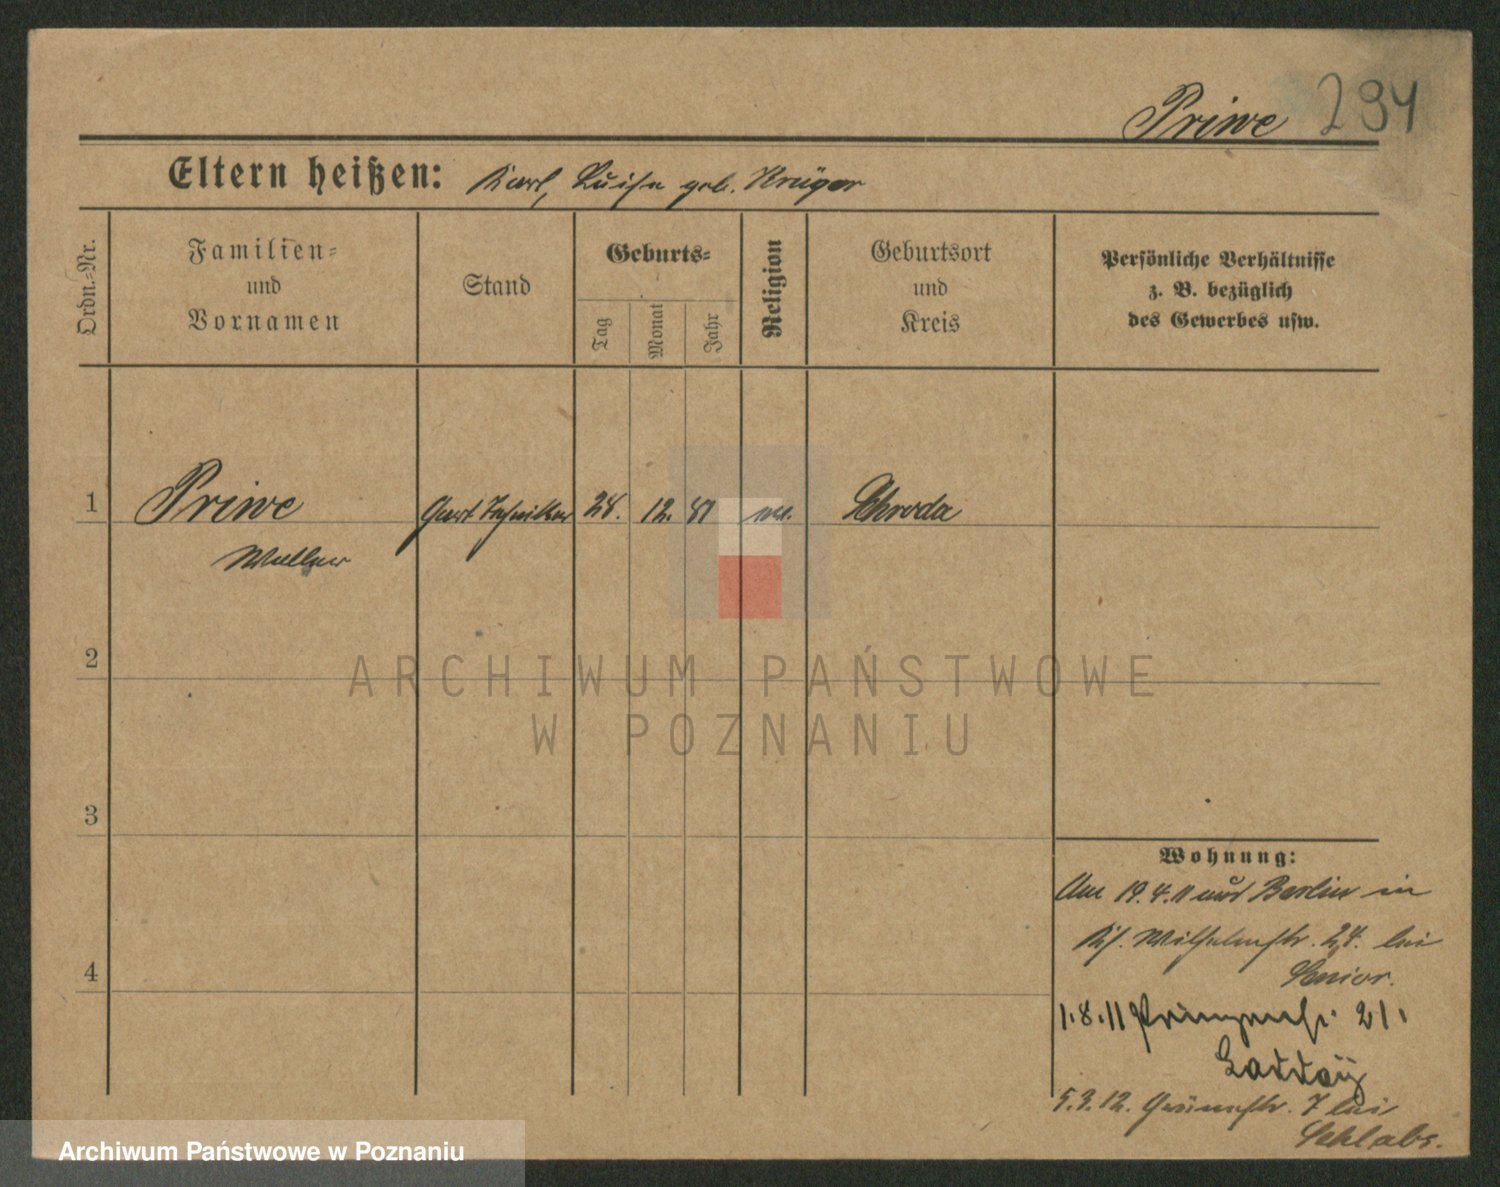 Priwe 294
Eltern heißen: Karl, Luise geb. Krüger
Ordn.-Nr.
Familien-
und
Vornamen
Stand
Geburts-
Tag
Monat
Jahr
Religion
Geburtsort
und
Kreis
Persönliche Verhältnisse
z. B. bezüglich
des Gewerbes usw.
1 Priwe Gart Techniker 28. 12. 81 Schroda
2
3
4
ARCHIWUM PAŃSTWOWE
W POZNANIU
Wohnung:
Am 19.4.11 aus Berlin in
Wilhelmstr. 24. bei
Senior.
1.8.11 21.
5.3.12. Grünestr. 7 bei
Schlabs.
Archiwum Państwowe w Poznaniu